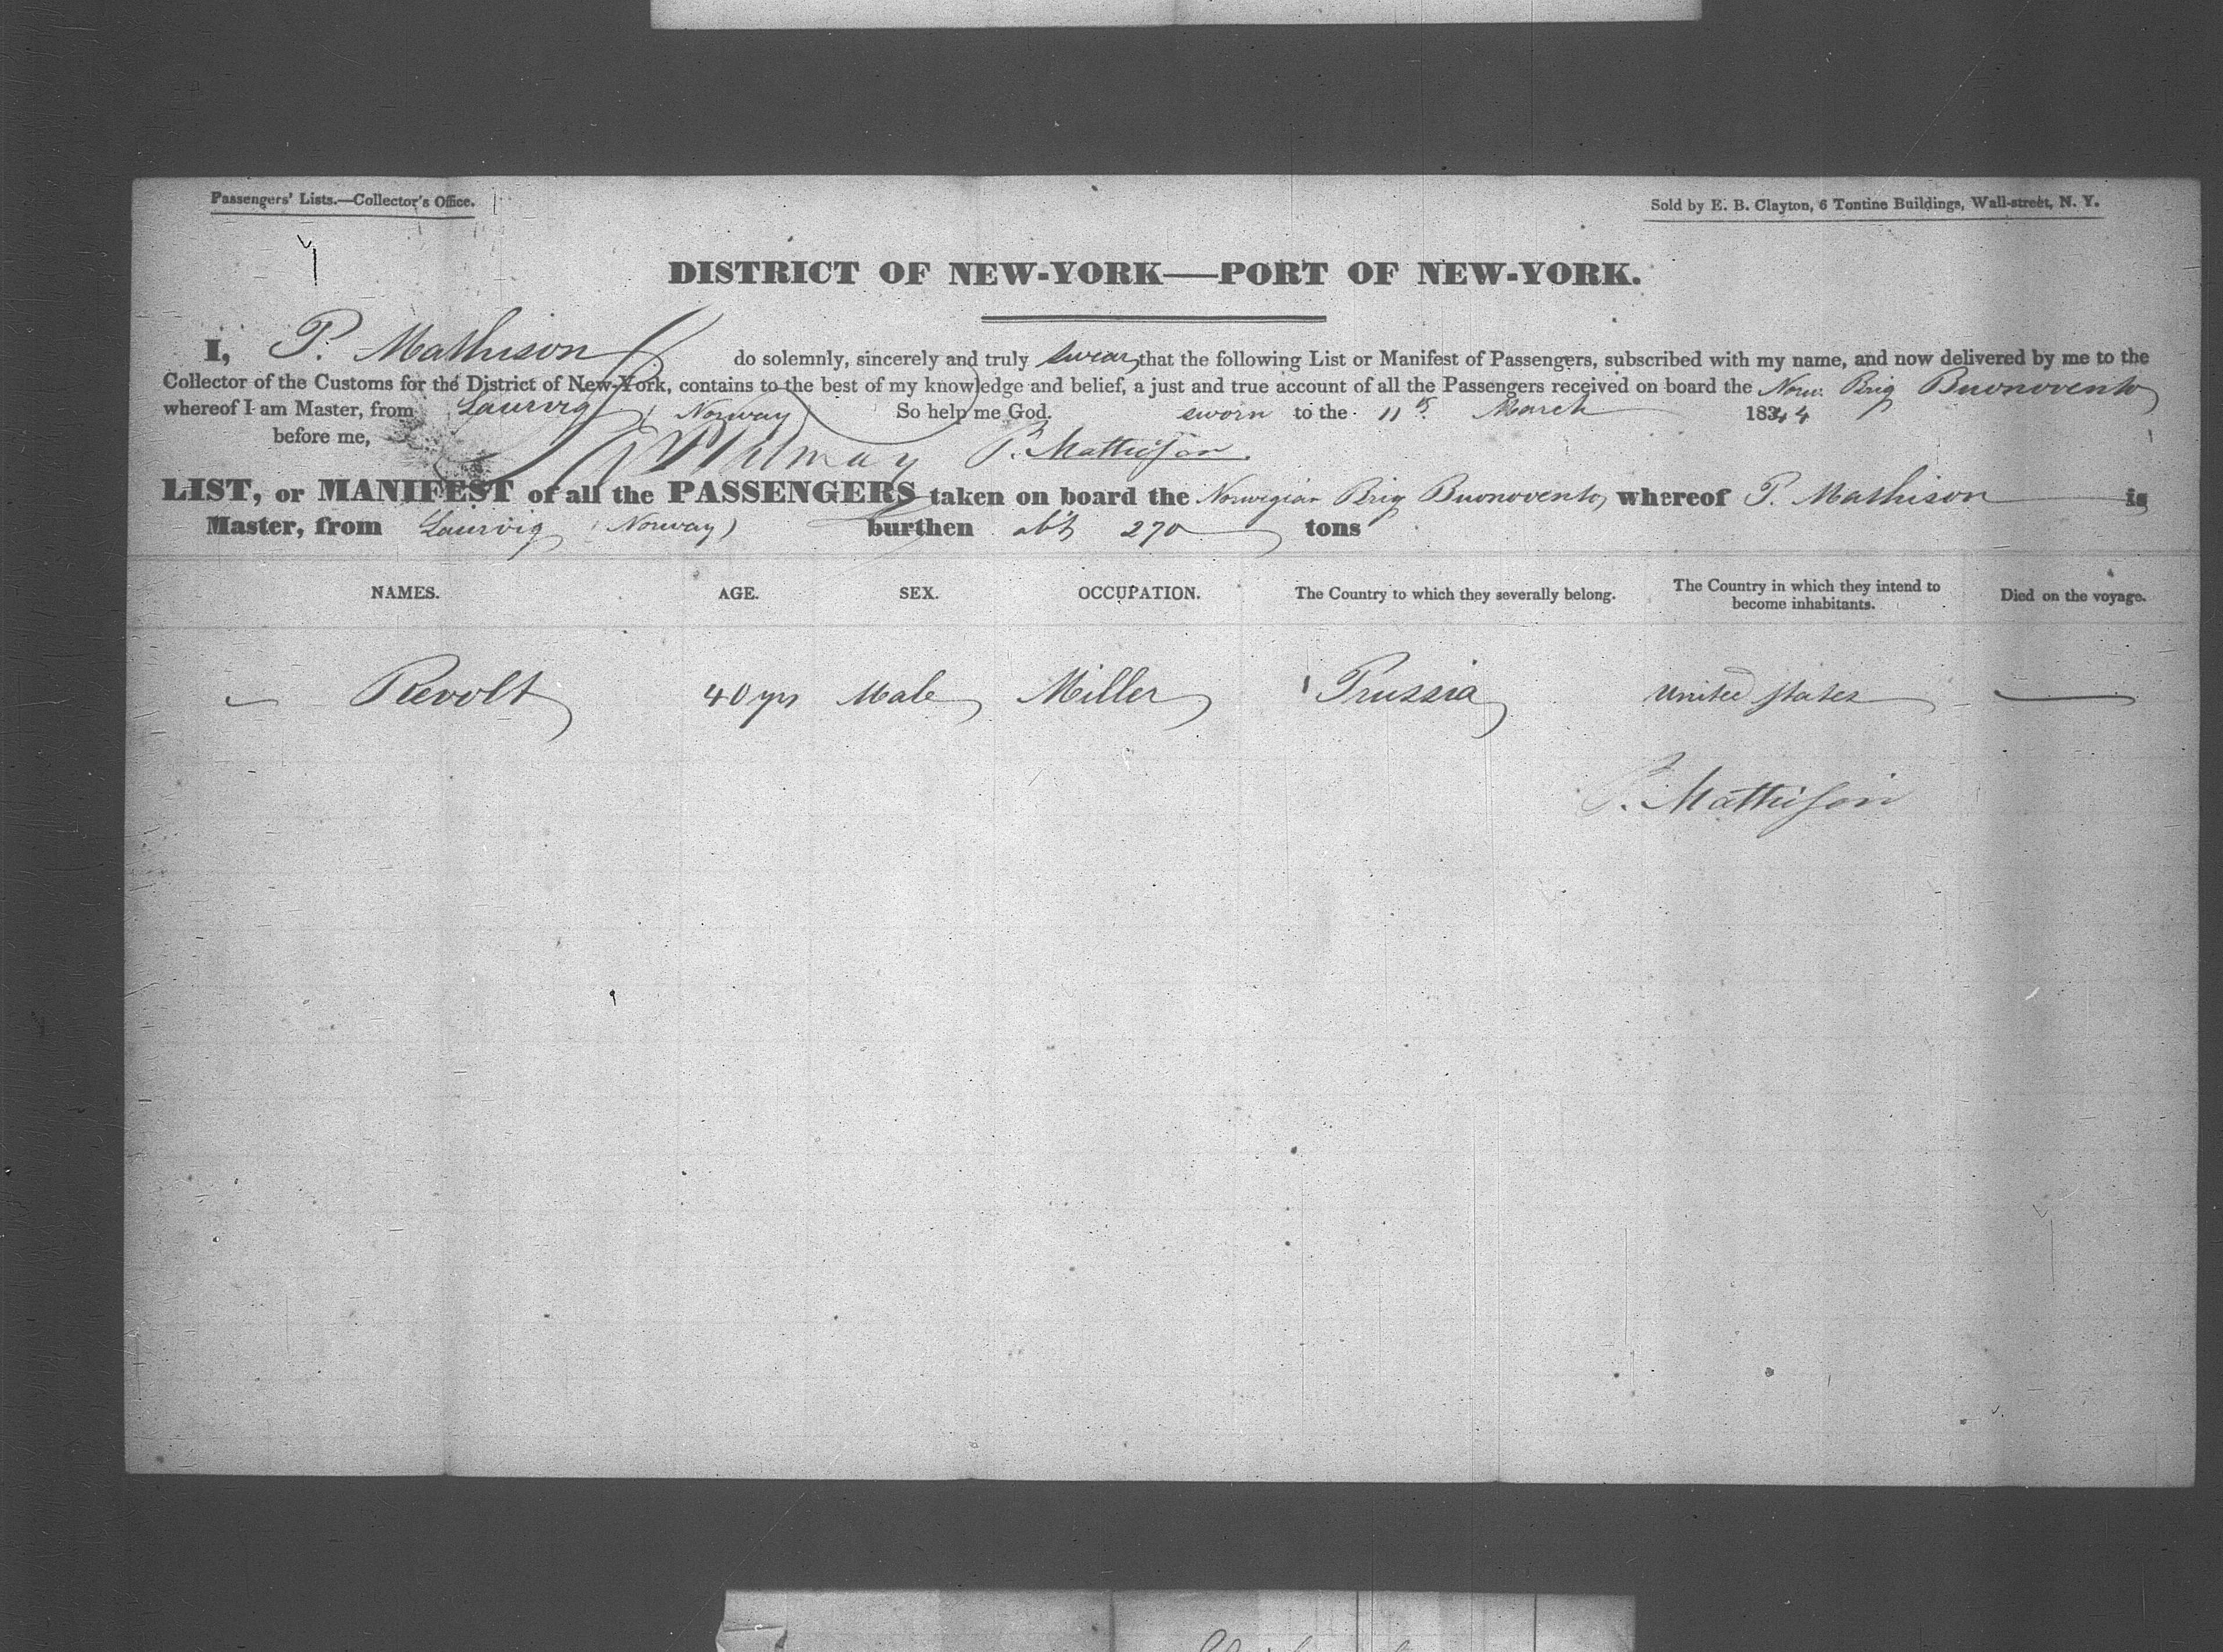 Passengers' Lists.—Collector's Office.
Sold by E. B. Clayton, 6 Tontine Buildings, Wall-street, N. Y.
1
DISTRICT OF NEW-YORK—PORT OF NEW-YORK.
I, P. Mathison do solemnly, sincerely and truly swear, that the following List or Manifest of Passengers, subscribed with my name, and now delivered by me to the
Collector of the Customs for the District of New-York, contains to the best of my knowledge and belief, a just and true account of all the Passengers received on board the Norw. Brig Buonovento
whereof I am Master, from Laurvig (Norway) So help me God. sworn to the 11th March 1844
before me, P. Mathison.
LIST, or MANIFEST of all the PASSENGERS taken on board the Norwegian Brig Buonovento, whereof P. Mathison is
Master, from Laurvig (Norway) burthen abt 270 tons
NAMES. AGE. SEX. OCCUPATION. The Country to which they severally belong. The Country in which they intend to become inhabitants. Died on the voyage.
Revolt 40 yrs Male Miller Prussia United States —
P. Mathison